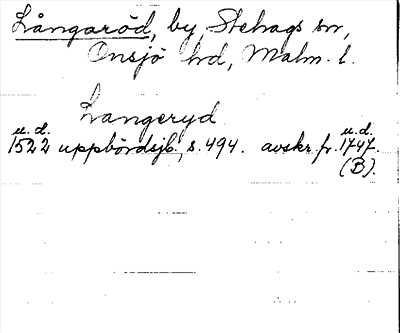 Långaröd, by, Stehags sn,
Onsjö hd, Malm. l.
Langeryd
u. d. u. d.
1522 uppbördsjb., s. 494. avskr. fr. 1747.
(B).